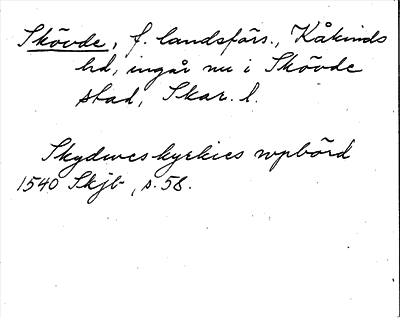 Skövde, f. landsförs., Kåkinds
hd, ingår nu i Skövde
stad, Skar. l.
Skydwes kyrkies wpbörd
1540 Skjb, s. 58.